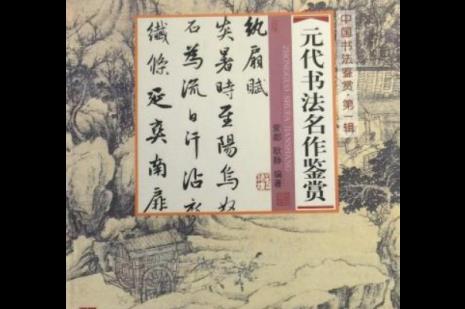 中国书法鉴赏·第一辑
元代书法名作鉴赏
ZHONGGUO SHUFA JIANSHANG
耿静 编著
纨扇赋
炎暑時至陽烏
石為流白汗沾
纖絺延爽南扉